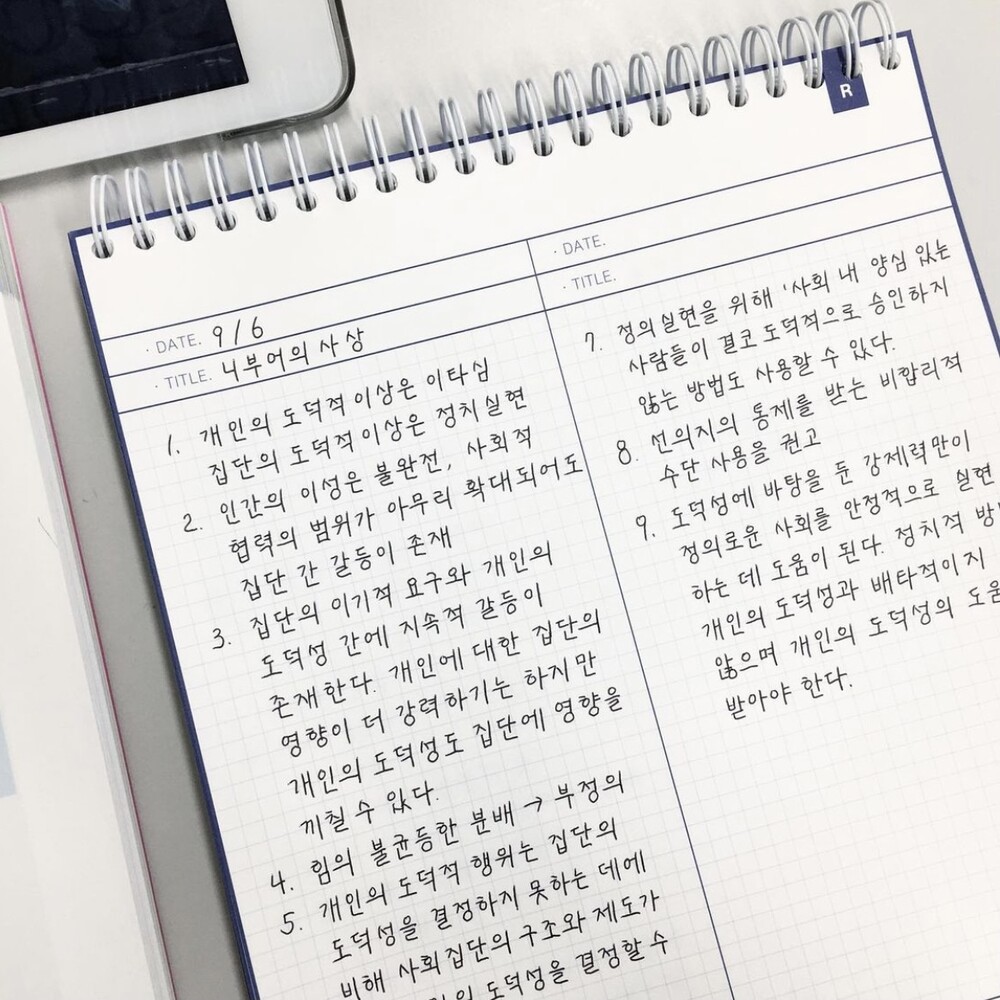 R
DATE. 9/6
TITLE. 니부어의 사상
1. 개인의 도덕적 이상은 이타심
집단의 도덕적 이상은 정치실현
2. 인간의 이성은 불완전, 사회적
협력의 범위가 아무리 확대되어도
집단 간 갈등이 존재
3. 집단의 이기적 요구와 개인의
도덕성 간에 지속적 갈등이
존재한다. 개인에 대한 집단의
영향이 더 강력하기는 하지만
개인의 도덕성도 집단에 영향을
끼칠 수 있다.
4. 힘의 불균등한 분배 → 부정의
5. 개인의 도덕적 행위는 집단의
도덕성을 결정하지 못하는 데에
비해 사회집단의 구조와 제도가
도덕성을 결정할 수
DATE.
TITLE.
7. 정의실현을 위해 '사회 내 양심 있는
사람들이 결코 도덕적으로 승인하지
않는 방법도 사용할 수 있다.
8. 선의지의 통제를 받는 비합리적
수단 사용을 권고
9. 도덕성에 바탕을 둔 강제력만이
정의로운 사회를 안정적으로 실현
하는 데 도움이 된다. 정치적
개인의 도덕성과 배타적이지
않으며 개인의 도덕성의
받아야 한다.